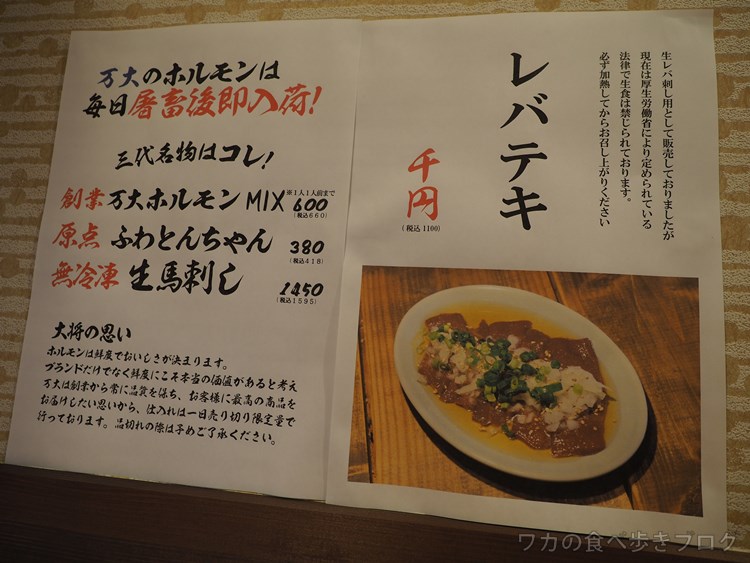 万大のホルモンは
毎日屠畜後即入荷!
三代名物はコレ!
創業 万大ホルモンMIX ※1人1人前まで 600
(税込660)
原点 ふわとんちゃん 380
(税込418)
無冷凍 生馬刺し 1450
(税込1595)
大将の思い
ホルモンは鮮度でおいしさが決まります。
ブランドだけでなく鮮度にこそ本当の価値があると考え
万大は創業から常に品質を保ち、お客様に最高の商品を
お届けしたい思いから、仕入れは一日売り切り限定量で
行っております。品切れの際は予めご了承ください。
生レバ刺し用として販売しておりましたが
現在は厚生労働省により定められている
法律で生食は禁じられております。
必ず加熱してからお召し上がりください
レバテキ
千円
(税込1100)
ワカの食べ歩きブログ